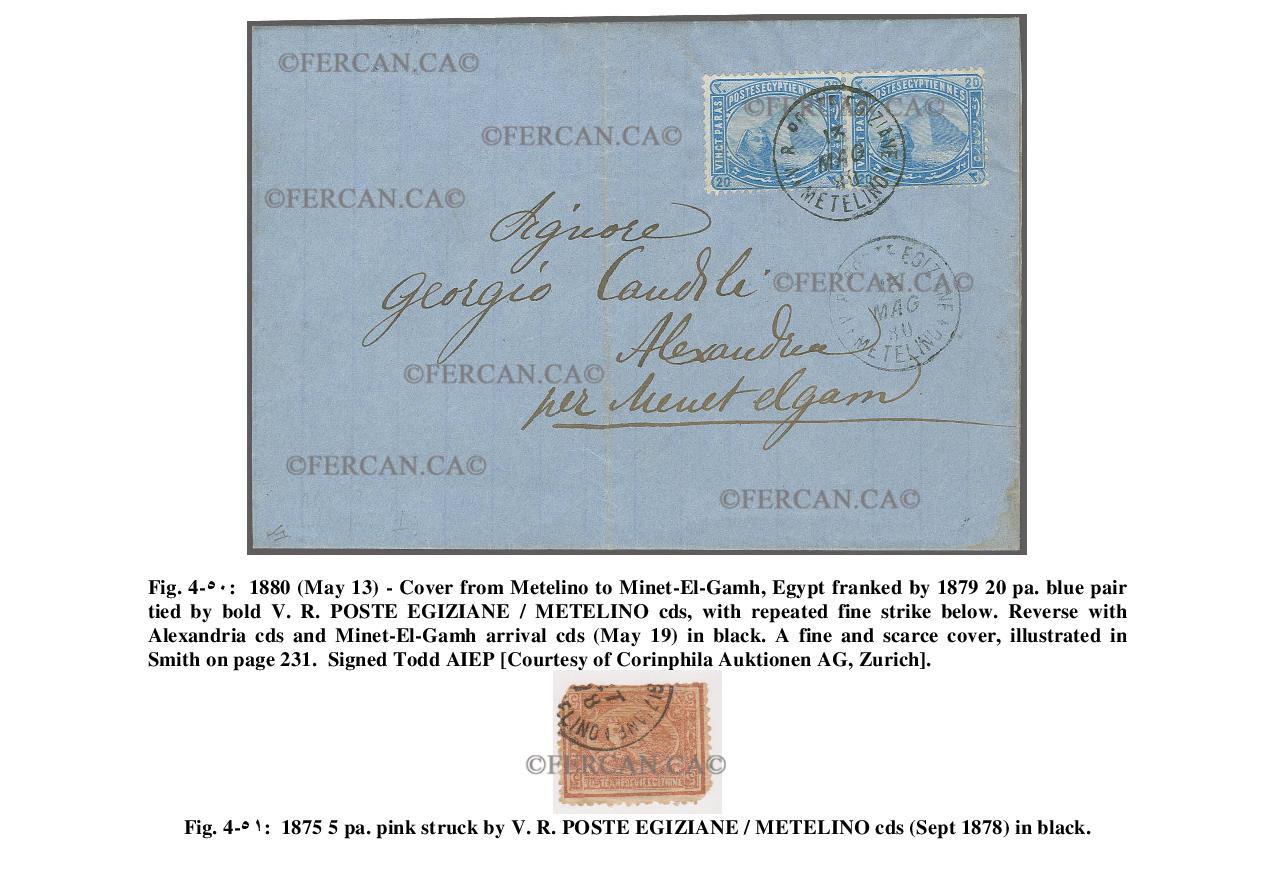 ©FERCAN.CA©
©FERCAN.CA©
©FERCAN.CA©
©FERCAN.CA©
20
POSTES EGYPTIENNES
POSTES EGYPTIENNES
VINGT PARAS
VINGT PARAS
20
V. R. POSTE EGIZIANE
13
MAG
80
METELINO
Signore
Georgio Candili
©FERCAN.CA©
V. R. POSTE EGIZIANE
13
MAG
80
METELINO
Alexandria
©FERCAN.CA©
per Menet elgam
©FERCAN.CA©
©FERCAN.CA©
Fig. 4-٥٠: 1880 (May 13) - Cover from Metelino to Minet-El-Gamh, Egypt franked by 1879 20 pa. blue pair
tied by bold V. R. POSTE EGIZIANE / METELINO cds, with repeated fine strike below. Reverse with
Alexandria cds and Minet-El-Gamh arrival cds (May 19) in black. A fine and scarce cover, illustrated in
Smith on page 231. Signed Todd AIEP [Courtesy of Corinphila Auktionen AG, Zurich].
©FERCAN.CA©
Fig. 4-٥١: 1875 5 pa. pink struck by V. R. POSTE EGIZIANE / METELINO cds (Sept 1878) in black.